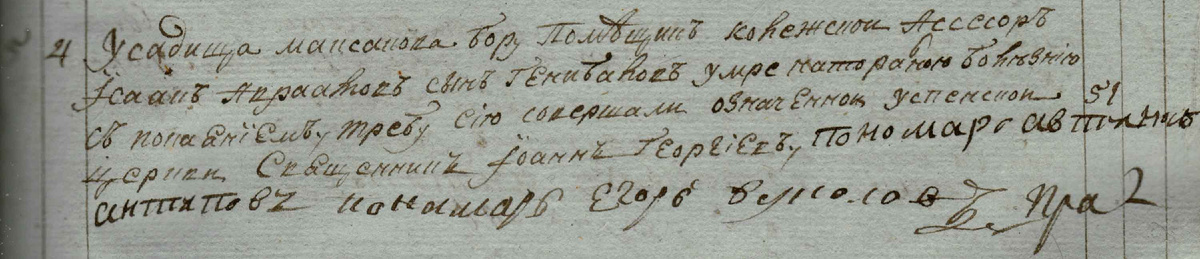 4 Усадища маисанова бору Помѣщикъ коллежской Асессоръ
Ісаакъ Авраамовъ сынъ Ганибаловъ умре натуралною болѣзнію
съ покаяніемъ, требу сію совершали означенной успенской 51
церкви Священникъ Іоаннъ Георгіевъ, пономарь
антиповъ понамарь Егоръ